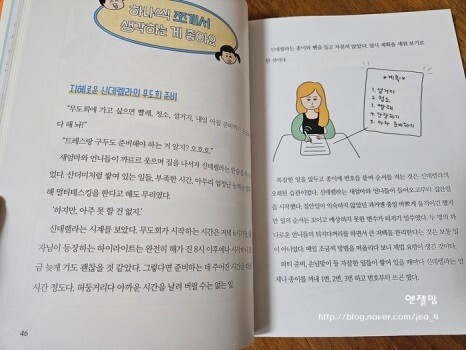 하나씩 쪼개서
생각하는 게 좋아요
지혜로운 신데렐라의 무도회 준비
"무도회에 가고 싶으면 빨래, 청소, 설거지, 내일 아침 준비까지
다 해 놔!"
"드레스랑 구두도 준비해야 하는 거 알지? 오호호."
새엄마와 언니들이 까르르 웃으며 집을 나서자 신데렐라는 한숨을
었다. 산더미처럼 쌓여 있는 일들, 부족한 시간, 아무리 엄청난
해 멀티태스킹을 한다고 해도 무리였다.
'하지만, 아주 못 할 건 없지.'
신데렐라는 시계를 보았다. 무도회가 시작하는 시간은 저녁
자님이 등장하는 하이라이트는 완전히 해가 진 8시 이후에나
금 늦게 가도 괜찮을 것 같았다. 그렇다면 준비하는 데 주어진 시간은
시간 정도다. 허둥거리다 아까운 시간을 날려 버릴 수는 없는 일
46
신데렐라는 종이와 펜을 들고 차분히 앉았다. 일의 계획을 세워 보기로
한 것이다.
<계획>
1. 설거지
2. 청소
3. 빨래
복잡한 일을 앞두고 종이에 번호를 붙여 순서를 적는 것은 신데렐라의
오래된 습관이었다. 신데렐라는 새엄마와 언니들이 들어오고부터 집안일
을 시작했다. 집안일이 익숙하지 않았던
만 일의 순서는 꼬이고 예상하지 못한 변수가 터지기 일쑤였다. 두 명의 까
다로운 언니들의 뒤치다꺼리를 하면서 큰 저택을 관리한다는 것은 보통 일
이 아니었다. 매일 조금씩 방법을 바꿔 보니 제법 요령이 생긴 것이다.
파티 준비, 손님맞이 등 자잘한 일들이 쌓여 있을 때마다 신데렐라는 언
제나 종이를 꺼내 1번, 2번, 3번 하고 번호부터 쓰곤 했다.
엔젤맘
http://blog.naver.com/jea_4